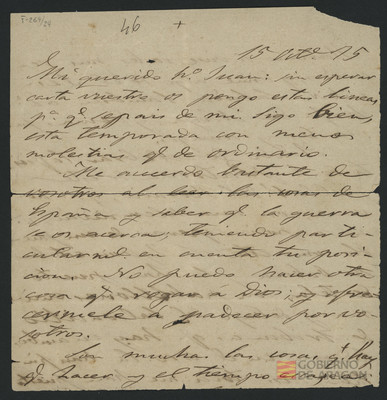 F-264/24
46 +
15 oct. 75
Mi querido hº Juan: sin esperar
carta vuestra os pongo estas lineas
pª qe sepais de mi. Sigo bien,
esta temporada con menos
molestias qe de ordinario.
Me acuerdo bastante de
vosotros al leer las cosas de
y saber qe la guerra
se os acerca, teniendo parti-
cularmte en cuenta tu posi-
cion. No puedo hacer otra
cosa qe rogar á Dios; y ofre-
cermele á padecer por vo-
sotros.
Son muchas las cosas qe hay
qe hacer y el tiempo es
GOBIERNO
DE ARAGON